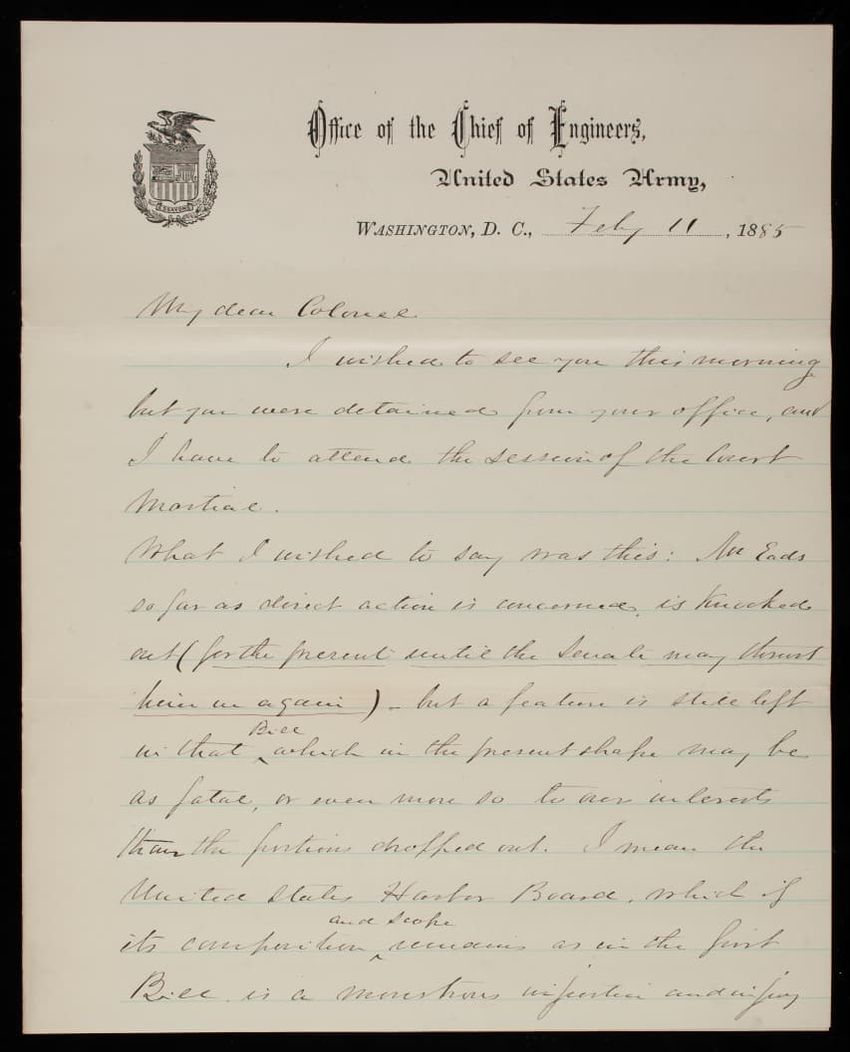 Office of the Chief of Engineers,
United States Army,
WASHINGTON, D. C., Feby 11, 1885
My dear Colonel
I wished to see you this morning
but you were detained from your office, and
I have to attend the session of the Court
Martial.
What I wished to say was this: Mr Eads
so far as direct action is concerned, is knocked
out (for the present until the Senate may thrust
him in again) - but a feature is still left
Bill
in that ‸ which in the present shape may be
as fatal, or even more so to our interests
than the portions dropped out. I mean the
United States Harbor Board, which if
and scope
its composition ‸ remains as in the first
Bill is a monstrous injustice and injury